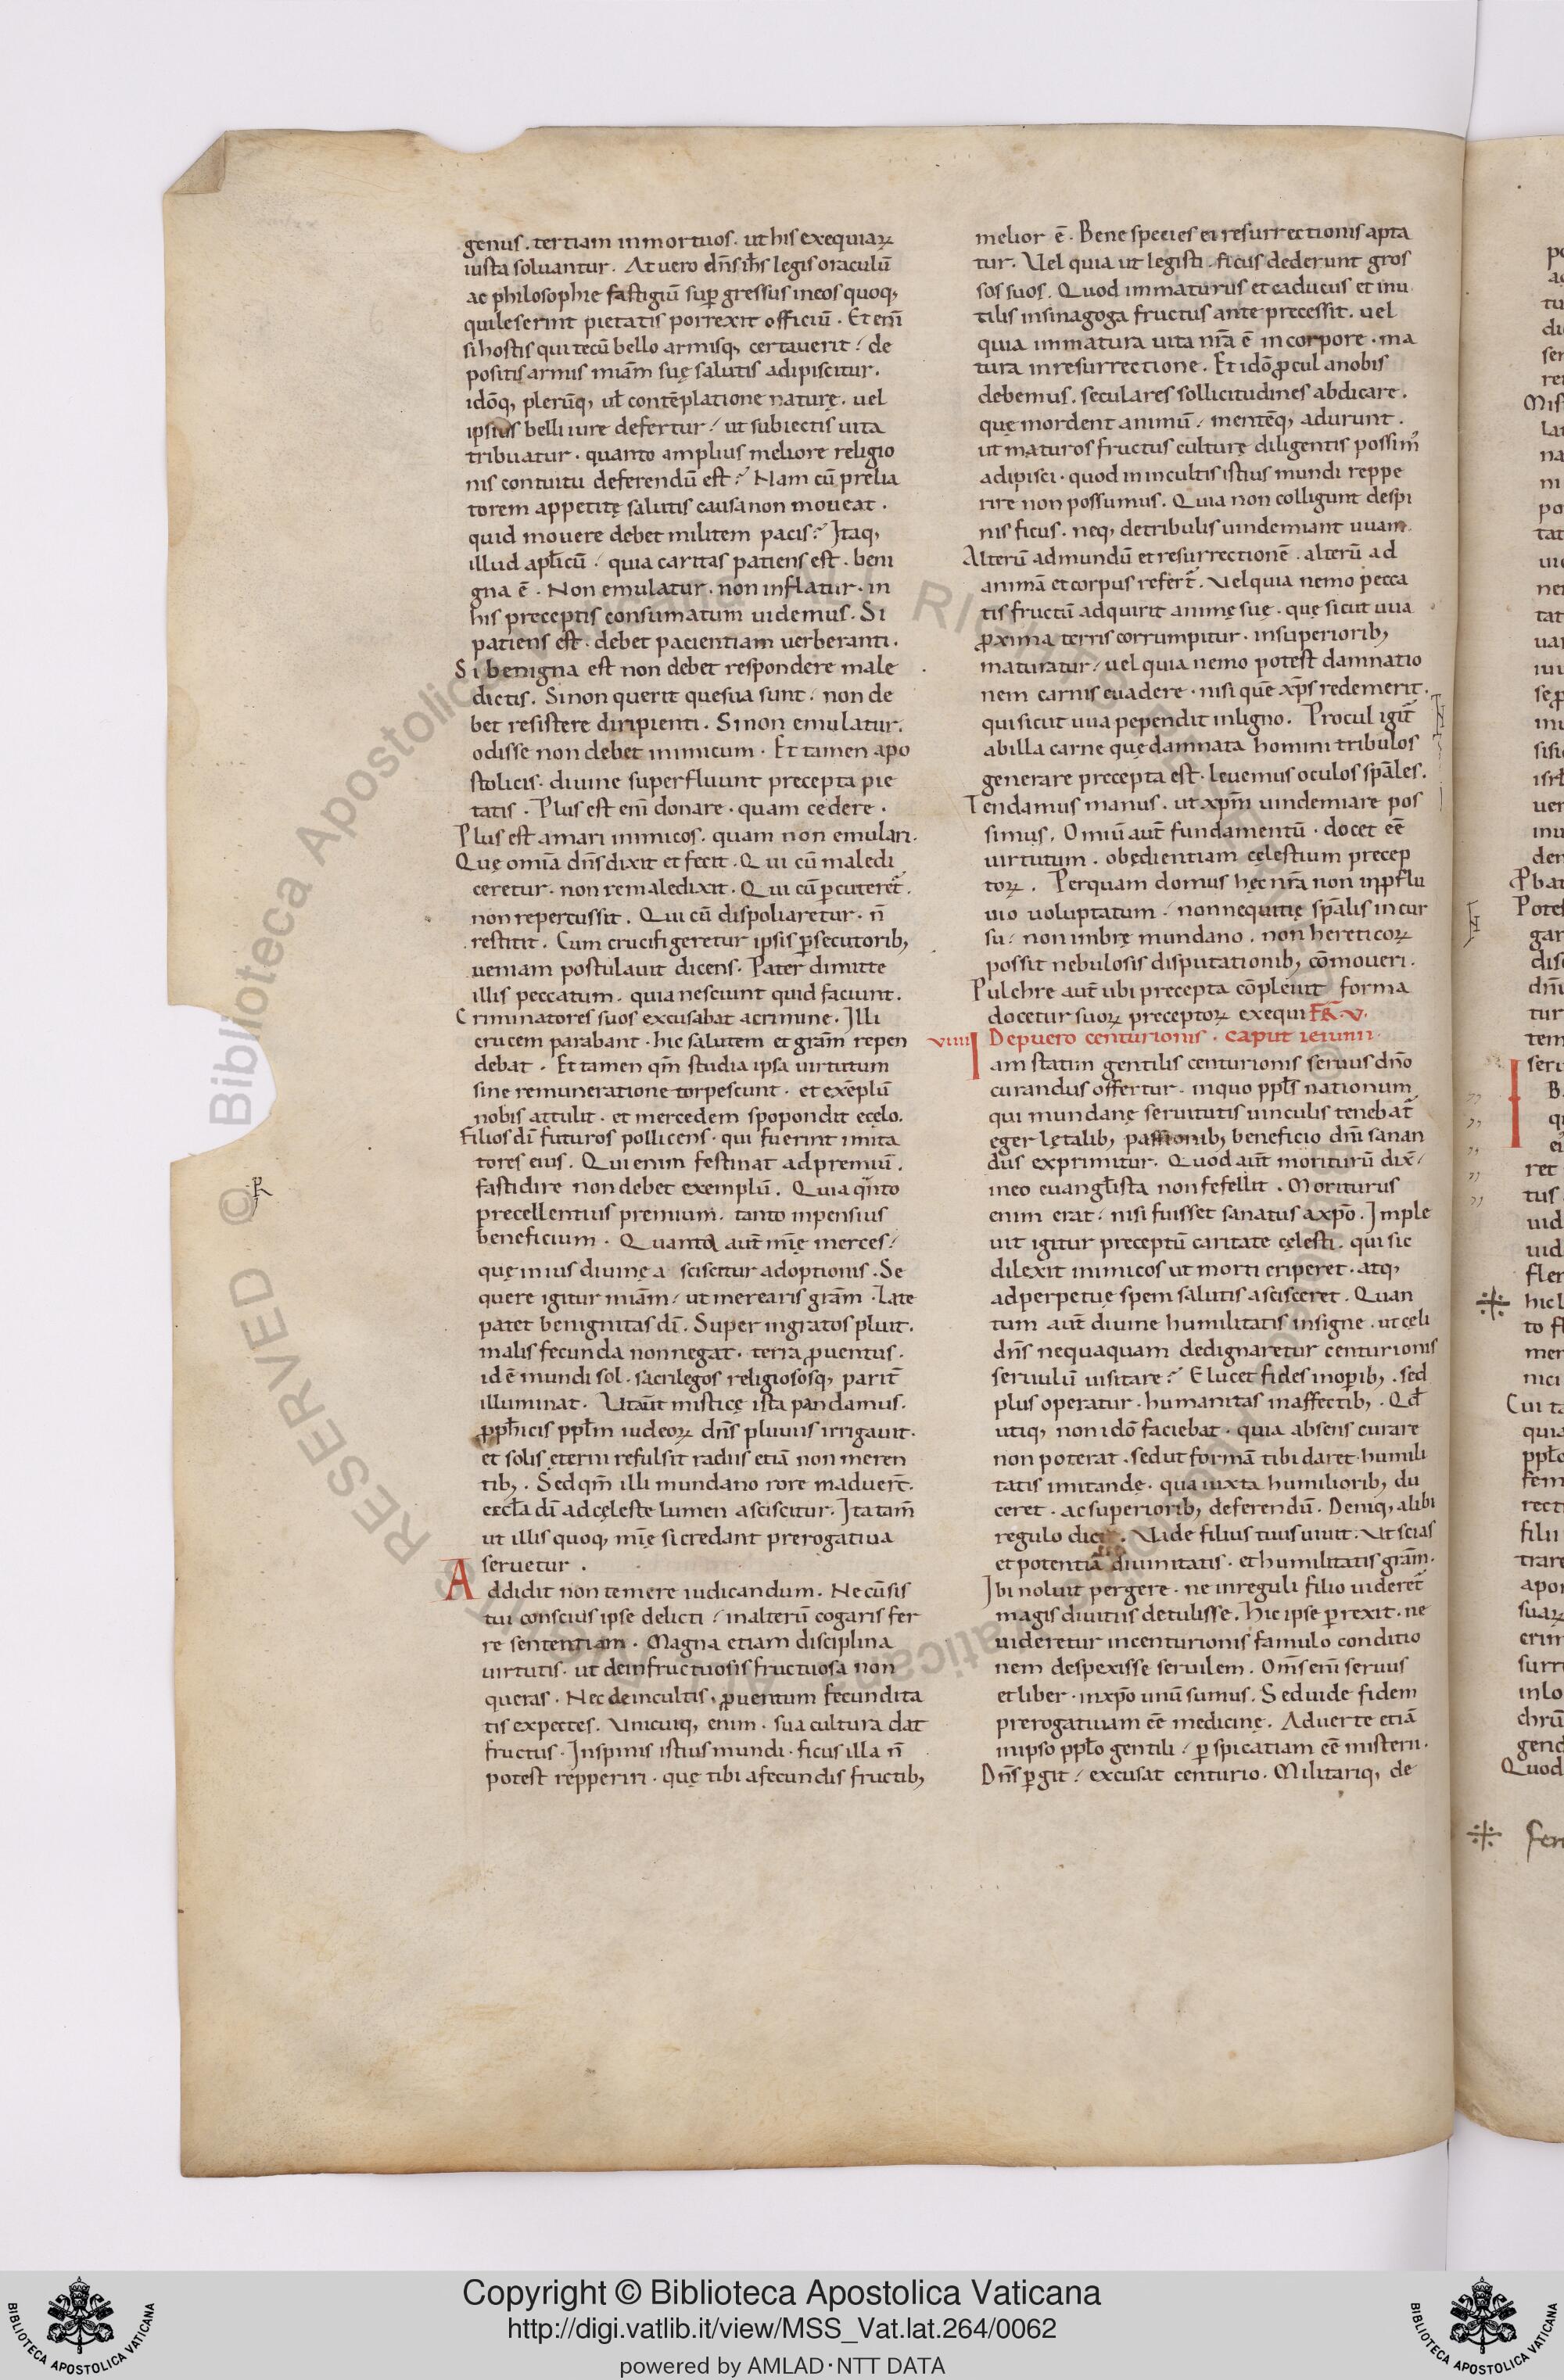 genus. tertiam inmortuos. ut his exequiaꝝ
iusta soluantur. At uero dn̄s ih̄s legis oraculū
ac philosophie fastigiū sup̱ gressus in eos quoq,
qui leserint pietatis porrexit officiū. Et eni̅
si hostis qui tecū bello armisq, certauerit / de
positis armis mia̅m suę salutis adipiscitur.
ido̅q, pleru̅q, ul̅ conte̅platione naturę. uel
ipsius belli iure defertur / ut subiectis uita
tribuatur. quanto amplius meliore religio
nis contuitu deferendū est? Nam cū prelia
torem appetitę salutis causa non moueat.
quid mouere debet militem pacis? Itaq,
illud aplicū / quia caritas patiens est. beni
gna ē. Non emulatur. non inflatur. in
his preceptis consumatum uidemus. Si
patiens est. debet pacientiam uerberanti.
Si benigna est non debet respondere male
dictis. Si non querit que sua sunt / non de
bet resistere diripienti. Si non emulatur.
odisse non debet inimicum. Et tamen apo
stolicis. diuine superfluunt precepta pie
tatis. Plus est eni̅ donare. quam cedere.
Plus est amari inimicos. quam non emulari.
Quę omīa dn̄s dixit et fecit. Qui cū maledi
ceretur. non remaledixit. Qui cū ꝑcuteret̅.
non repercussit. Qui cū dispoliaretur. n̄
restitit. Cum crucifigeretur ipsis ꝑsecutorib,
ueniam postulauit dicens. Pater dimitte
illis peccatum. quia nesciunt quid faciunt.
Criminatores suos excusabat a crimine. Illi
crucem parabant. hic salutem et gr̄am repen
debat. Et tamen qm̄ studia ipsa uirtutum
sine remuneratione torpescunt. et exe̅plū
nobis attulit. et mercedem spopondit ecęlo.
Filios dī futuros pollicens. qui fuerint imita
tores eius. Qui enim festinat ad premiū.
fastidire non debet exemplū. Quia qn̅to
precellentius premium. tanto inpensius
beneficium. Quanta aut̅ mīę merces /
quę in ius diuinę a sciscitur adoptionis. Se
quere igitur mia̅m / ut merearis gr̄am. Late
patet benignitas dī. Super ingratos pluit.
malis fecunda non negat. terra ꝓuentus.
idē mundi sol. sacrilegos religiososq, parit̅
illuminat. Ut aūt misticę ista pandamus.
ꝓph̅icis ppl̅m iudeoꝝ dn̄s pluuiis irrigauit.
et solis ęterni refulsit radiis etiā non meren
tib,. Sed qm̄ illi mundano rore maduer̅t.
eccl̅a dī ad cęleste lumen asciscitur. Ita tam̅
ut illis quoq, mīę si credant prerogatiua
seruetur.
Addidit non temere iudicandum. Ne cū sis
tui conscius ipse delicti / in alterū cogaris fer
re sententiam. Magna etiam disciplina
uirtutis. ut de infructuosis fructuosa non
queras. Nec de incultis, ꝓuentum fecundita
tis expectes. Unicuiq, enim. sua cultura dat
fructus. In spinis istius mundi. ficus illa n̄
potest repperiri. quę tibi a fecundis fructib,
melior ē. Bene species ei resurrectionis apta
tur. Uel quia ut legisti. ficus dederunt gros
sos suos. Quod immaturus et caducus et inu
tilis in sinagoga fructus ante precessit. uel
quia immatura uita nr̄a ē in corpore. ma
tura in resurrectione. Et idō ꝓcul a nobis
debemus. seculares sollicitudines abdicare.
quę mordent animū / mente̅q, adurunt.
ut maturos fructus culturę diligentis possim᾽
adipisci. quod in incultis istius mundi reppe
rire non possumus. Quia non colligunt de spi
nis ficus. neq, de tribulis uindemiant uuam.
Alterū ad mundū et resurrectionē. alterū ad
animā et corpus refert̅. Uel quia nemo pecca
tis fructū adquirit animę suę. quę sicut uua
ꝓxima terris corrumpitur. in superiorib,
maturatur / uel quia nemo potest damnatio
nem carnis euadere. nisi quē xp̄s redemerit.
qui sicut uua pependit in ligno. Procul igit̅
ab illa carne quę damnata homini tribulos
generare precepta est. leuemus oculos sp̄ales.
Tendamus manus. ut xp̄m uindemiare pos
simus. Omniū aut̅ fundamentū. docet ēē
uirtutum. obędientiam cęlestium precep
toꝝ. Per quam domus hęc nr̄a non inꝓflu
uio uoluptatum / non nequitię sp̄alis incur
su / non imbrę mundano. non hereticoꝝ
possit nebulosis disputationib, co̅moueri.
Pulchre aut̅ ubi precepta co̅pleuit forma
docetur suoꝝ preceptoꝝ exequi FR. V.
VIIII De puero centurionis. caput ieiunii.
Iam statim gentilis centurionis seruus dn̄o
curandus offertur. in quo ppl̅s nationum
qui mundanę seruitutis uinculis tenebat̅
eger lętalib, passionib, beneficio dn̄i sanan
dus exprimitur. Quod aūt moriturū dix̅ /
in eo euangl̅ista non fefellit. Moriturus
enim erat / nisi fuisset sanatus a xp̄o. Imple
uit igitur preceptū caritate cęlesti. qui sic
dilexit inimicos ut morti eriperet. atq,
ad perpetuę spem salutis ascisceret. Quan
tum aut̅ diuine humilitatis insigne. ut cęli
dn̄s nequaquam dedignaretur centurionis
seruulū uisitare? Elucet fides in oꝑib,. sed
plus operatur. humanitas in affectib,. Qd̅
utiq, non idō faciebat. quia absens curare
non poterat. sed ut formā tibi daret humili
tatis imitandę. qua iuxta humilioribus, du
ceret. ac superiorib, deferendū. Deniq, alibi
regulo dicit. Uade filius tuus uiuit. Ut scias
et potentiā diuinitatis. et humilitatis gr̄am.
Ibi noluit pergere. ne in reguli filio uideret̅
magis diuitiis detulisse. Hic ipse ꝑrexit. ne
uideretur in centurionis famulo conditio
nem despexisse seruilem. Om̅s eni̅ seruus
et liber. in xp̄o unū sumus. Sed uide fidem
prerogatiuam ēē medicinę. Aduerte etiā
in ipso ppl̅o gentili / ꝑspicatiam ēē misterii.
Dn̄s ꝑgit / excusat centurio. Militariq, de
Copyright © Biblioteca Apostolica Vaticana
http://digi.vatlib.it/view/MSS_Vat.lat.264/0062
powered by AMLAD·NTT DATA